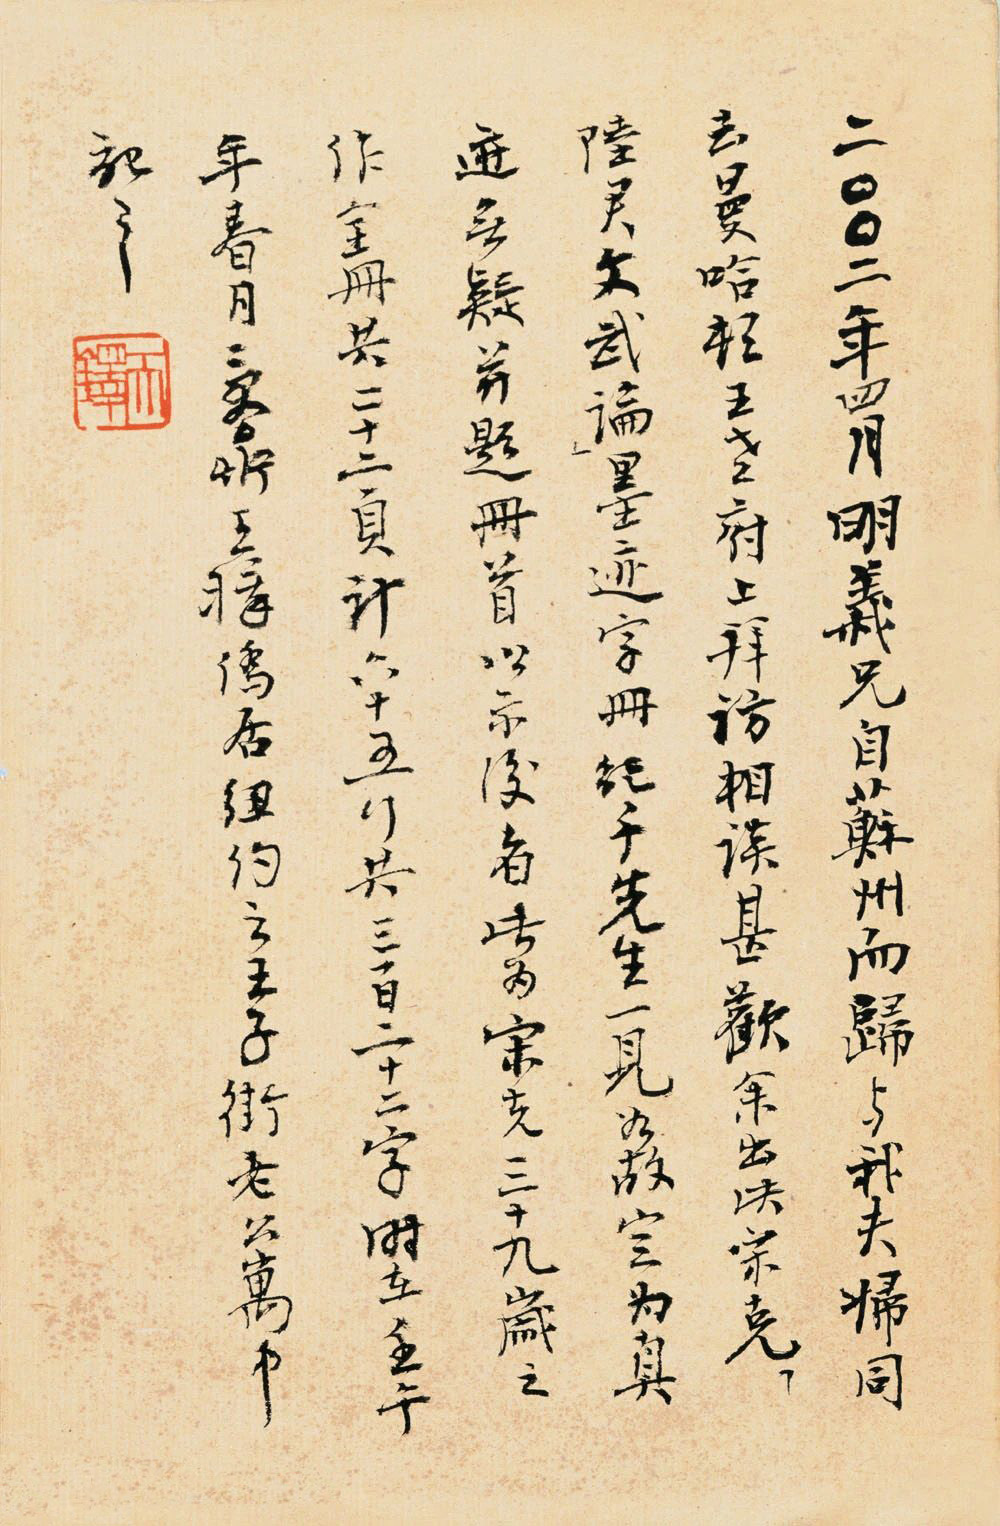 二〇〇二年四月明義兄自蘇州而歸与我夫婦同
去曼哈頓王老府上拜访相談甚歡余出決宋克「
陸君文武論」墨迹字冊 千先生一見 故定为真
迹无疑并題冊首以示後者此为宋克三十九歲之
作全冊共二十二頁計六十五行共三百二十二字時在壬午
年春月 王 僑居纽约之王子街老公寓中
記之